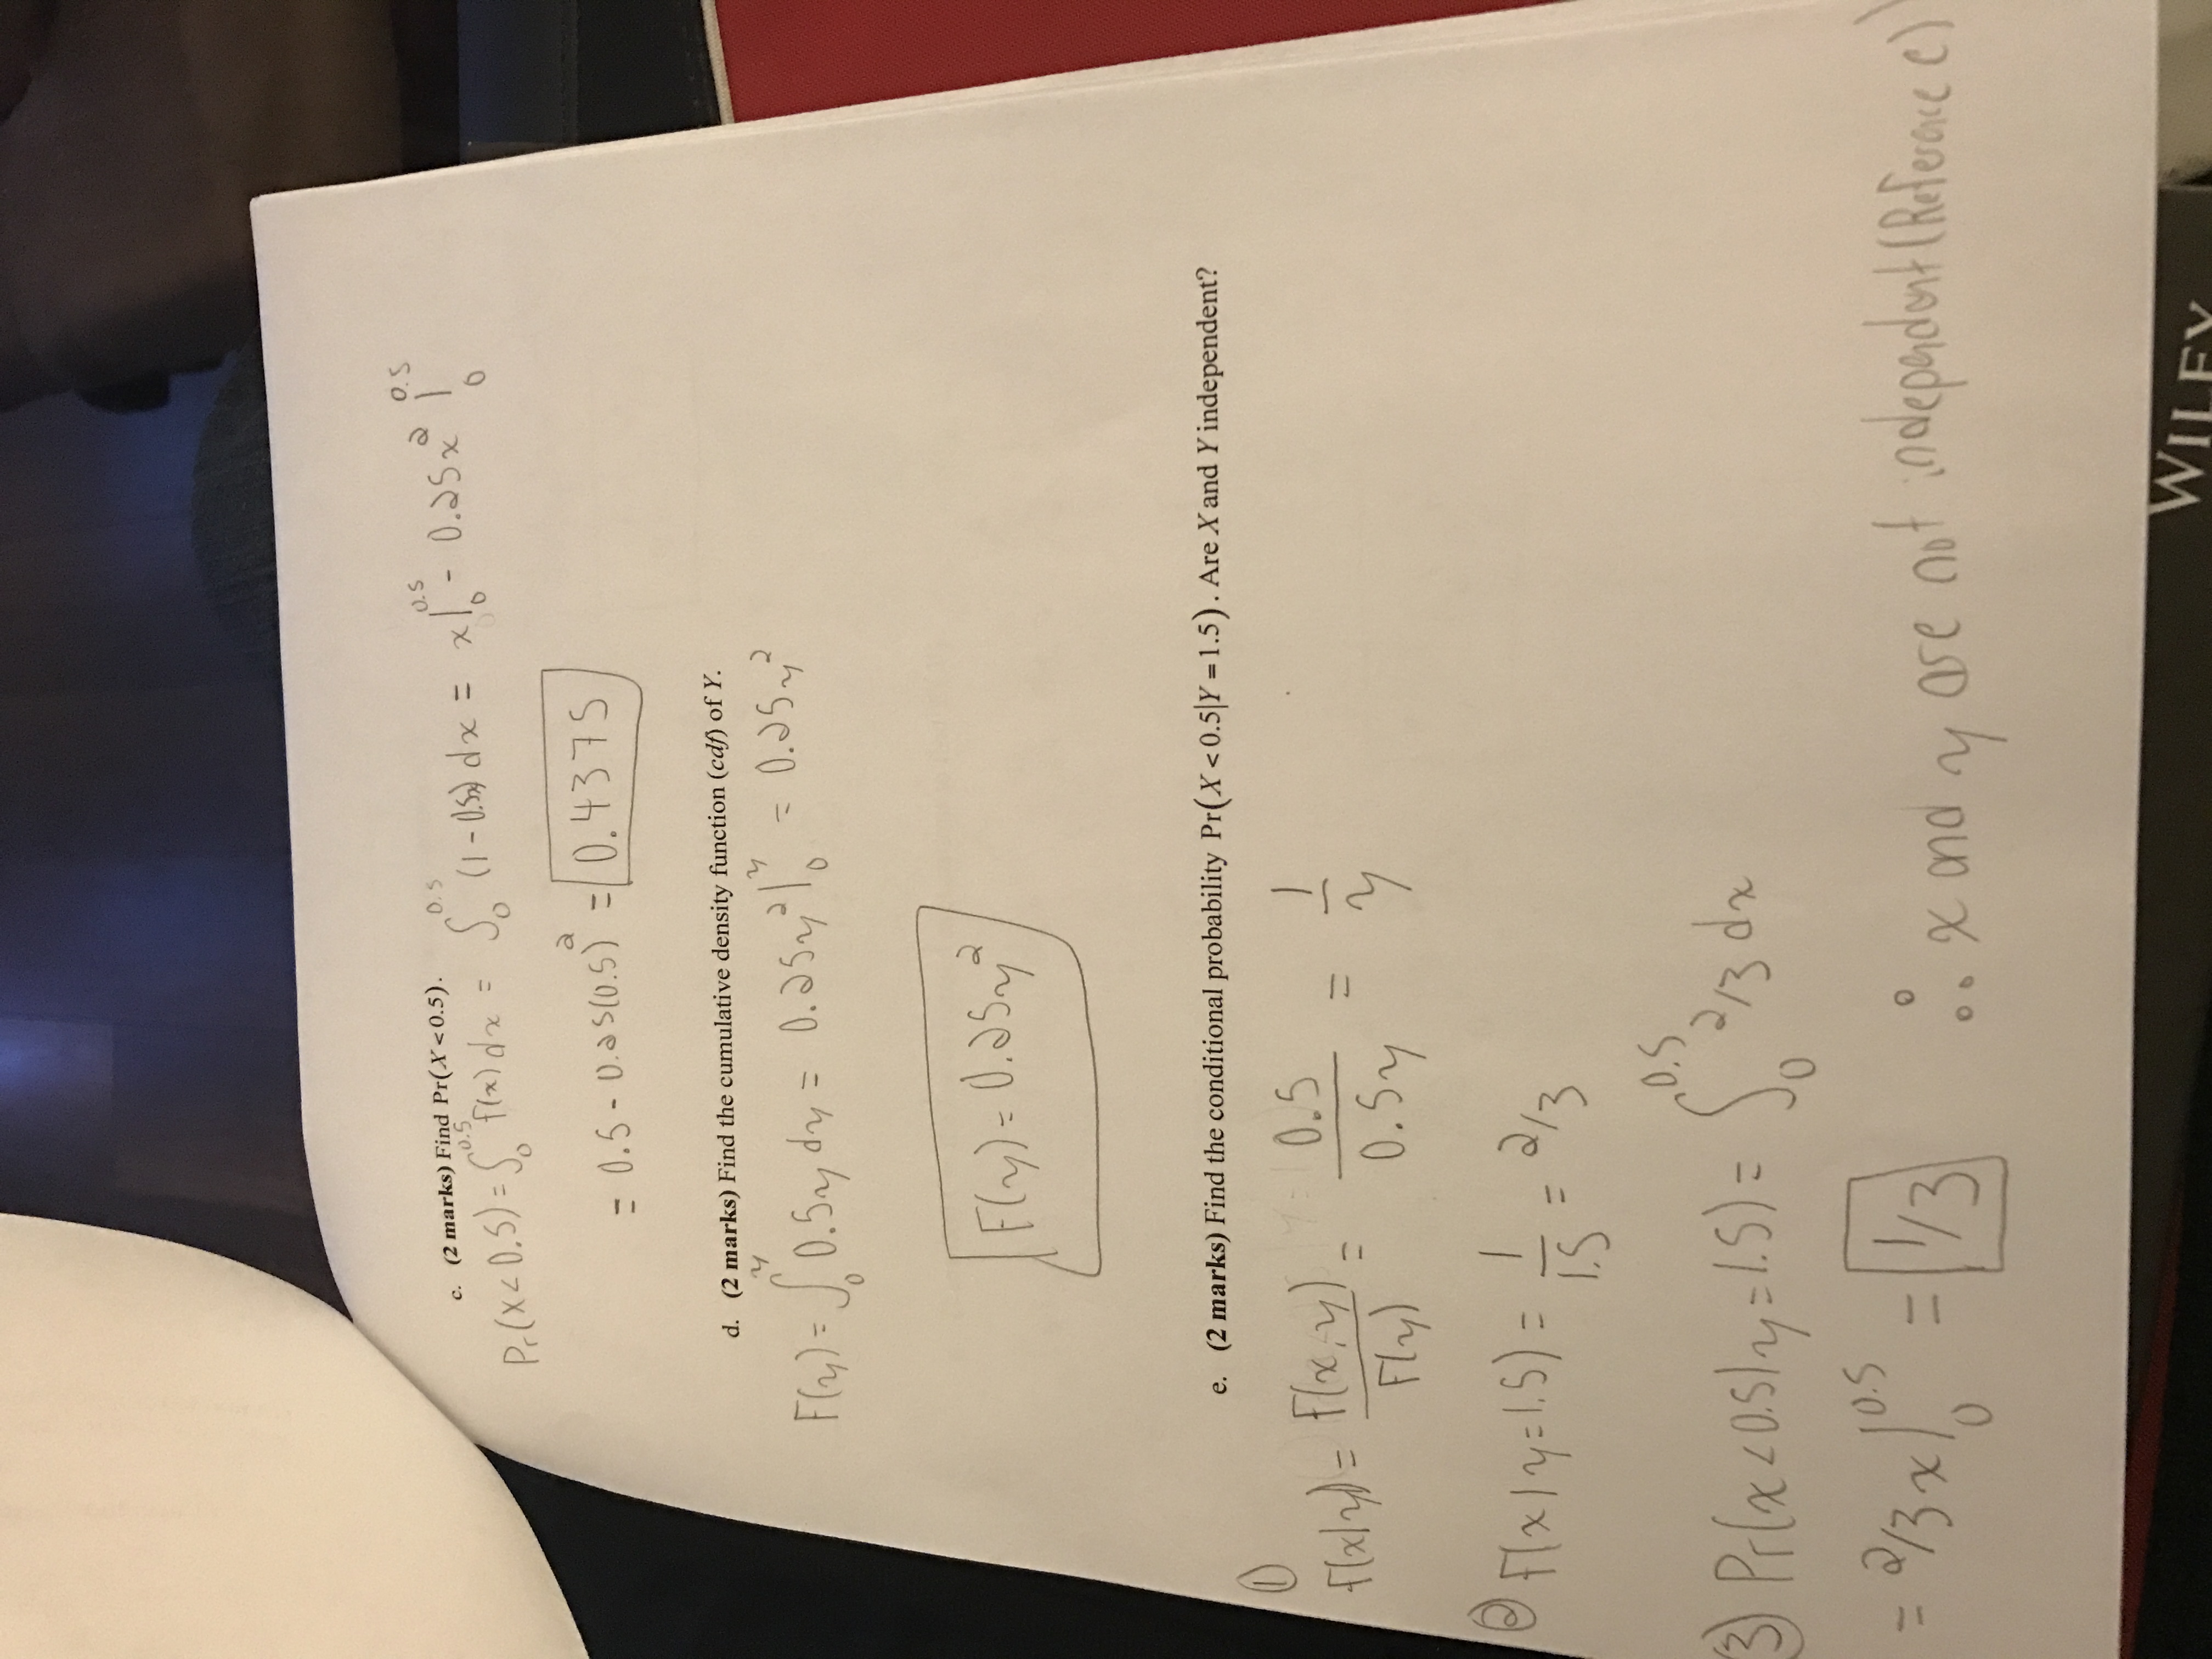 c. (2 marks) Find Pr(X<0.5).
Pr(x<0.5) = ∫₀^0.5 f(x) dx = ∫₀^0.5 (1-0.5x) dx = x|₀^0.5 - 0.25x²|₀^0.5
= 0.5 - 0.25(0.5)² = 0.4375
d. (2 marks) Find the cumulative density function (cdf) of Y.
F(y) = ∫₀^y 0.5y dy = 0.25y²|₀^y = 0.25y²
F(y) = 0.25y²
e. (2 marks) Find the conditional probability Pr(X<0.5|Y=1.5). Are X and Y independent?
① f(x|y) = F(x,y)/F(y) = 0.5/0.5y = 1/y
② F(x|y=1.5) = 1/1.5 = 2/3
③ Pr(x<0.5|y=1.5) = ∫₀^0.5 2/3 dx
= 2/3x|₀^0.5 = 1/3
∴ x and y are not independent (Reference c)
WILEY